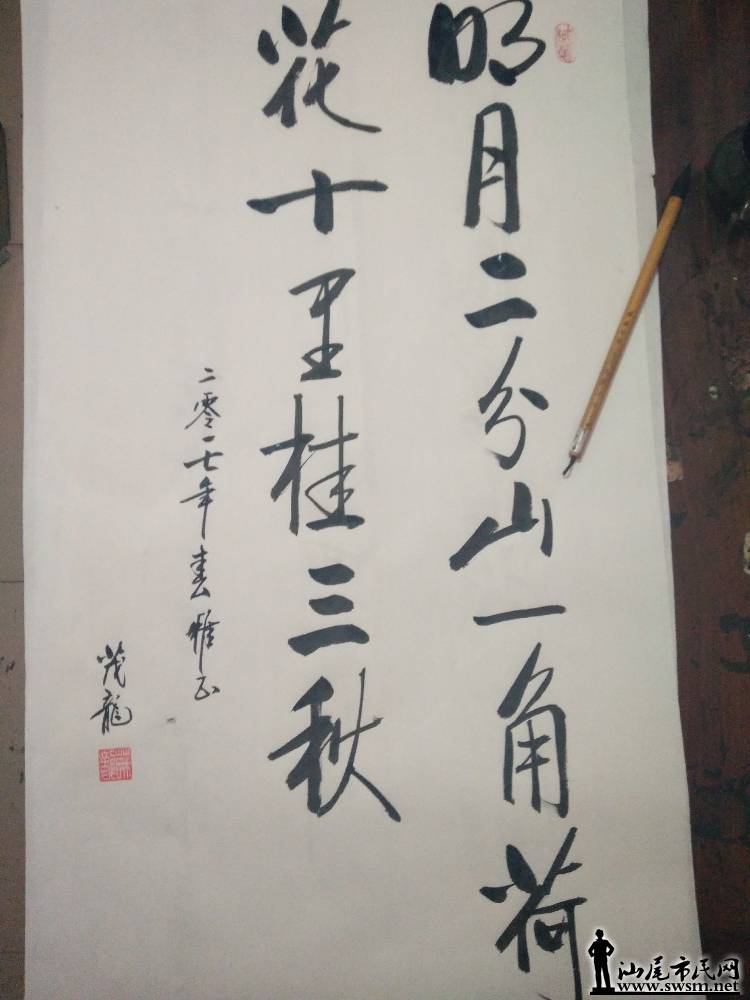 明月二分山一角荷
花十里桂三秋
二零一七年春雅正
茂龍
汕尾市民网
www.swsm.net